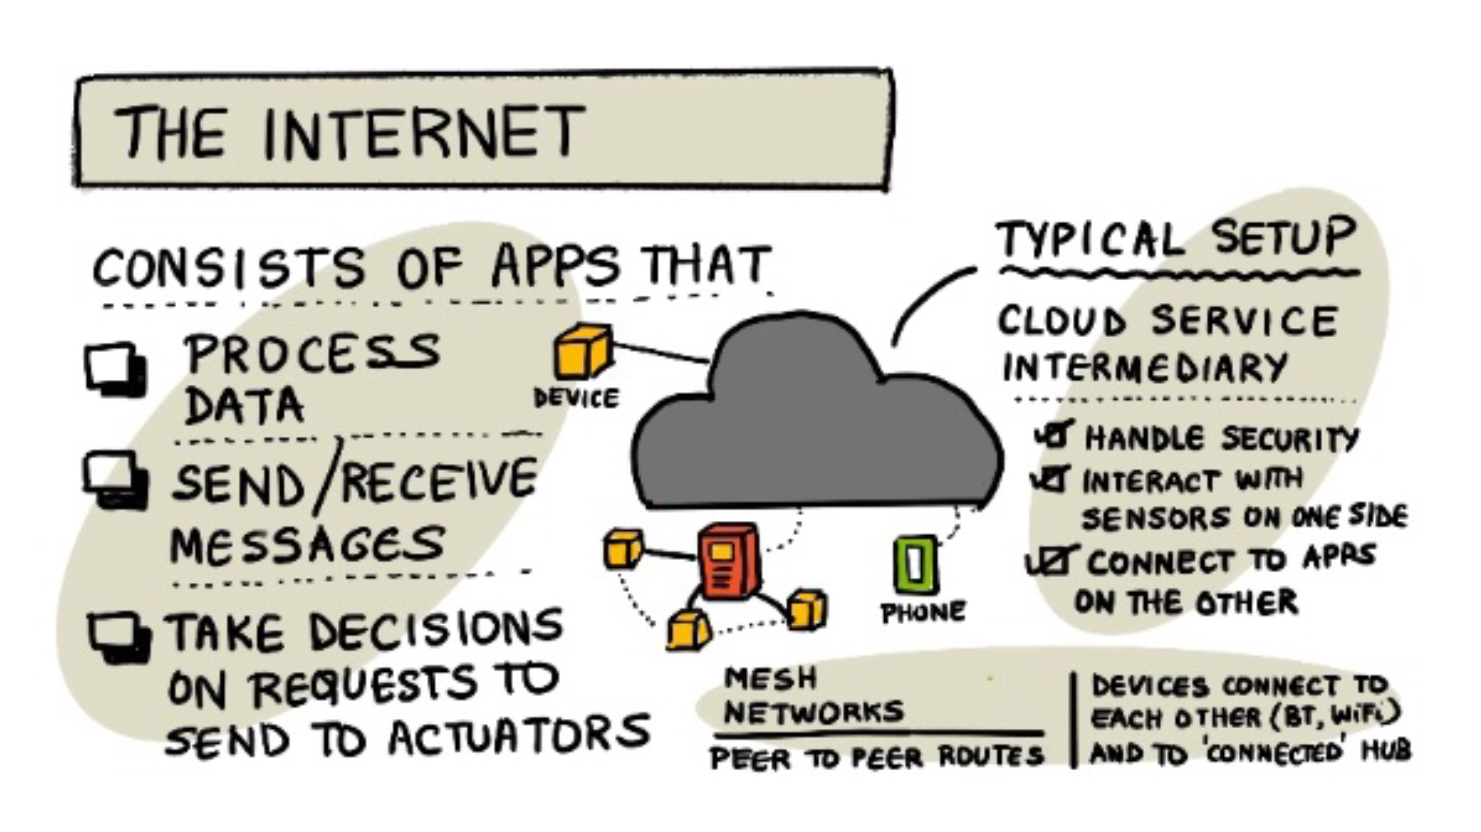 THE INTERNET
CONSISTS OF APPS THAT
PROCESS
DATA
SEND/RECEIVE
MESSAGES
TAKE DECISIONS
ON REQUESTS TO
SEND TO ACTUATORS
DEVICE
PHONE
TYPICAL SETUP
CLOUD SERVICE
INTERMEDIARY
HANDLE SECURITY
INTERACT WITH
SENSORS ON ONE SIDE
CONNECT TO APPS
ON THE OTHER
MESH
NETWORKS
PEER TO PEER ROUTES
DEVICES CONNECT TO
EACH OTHER (BT, WiFi)
AND TO 'CONNECTED' HUB